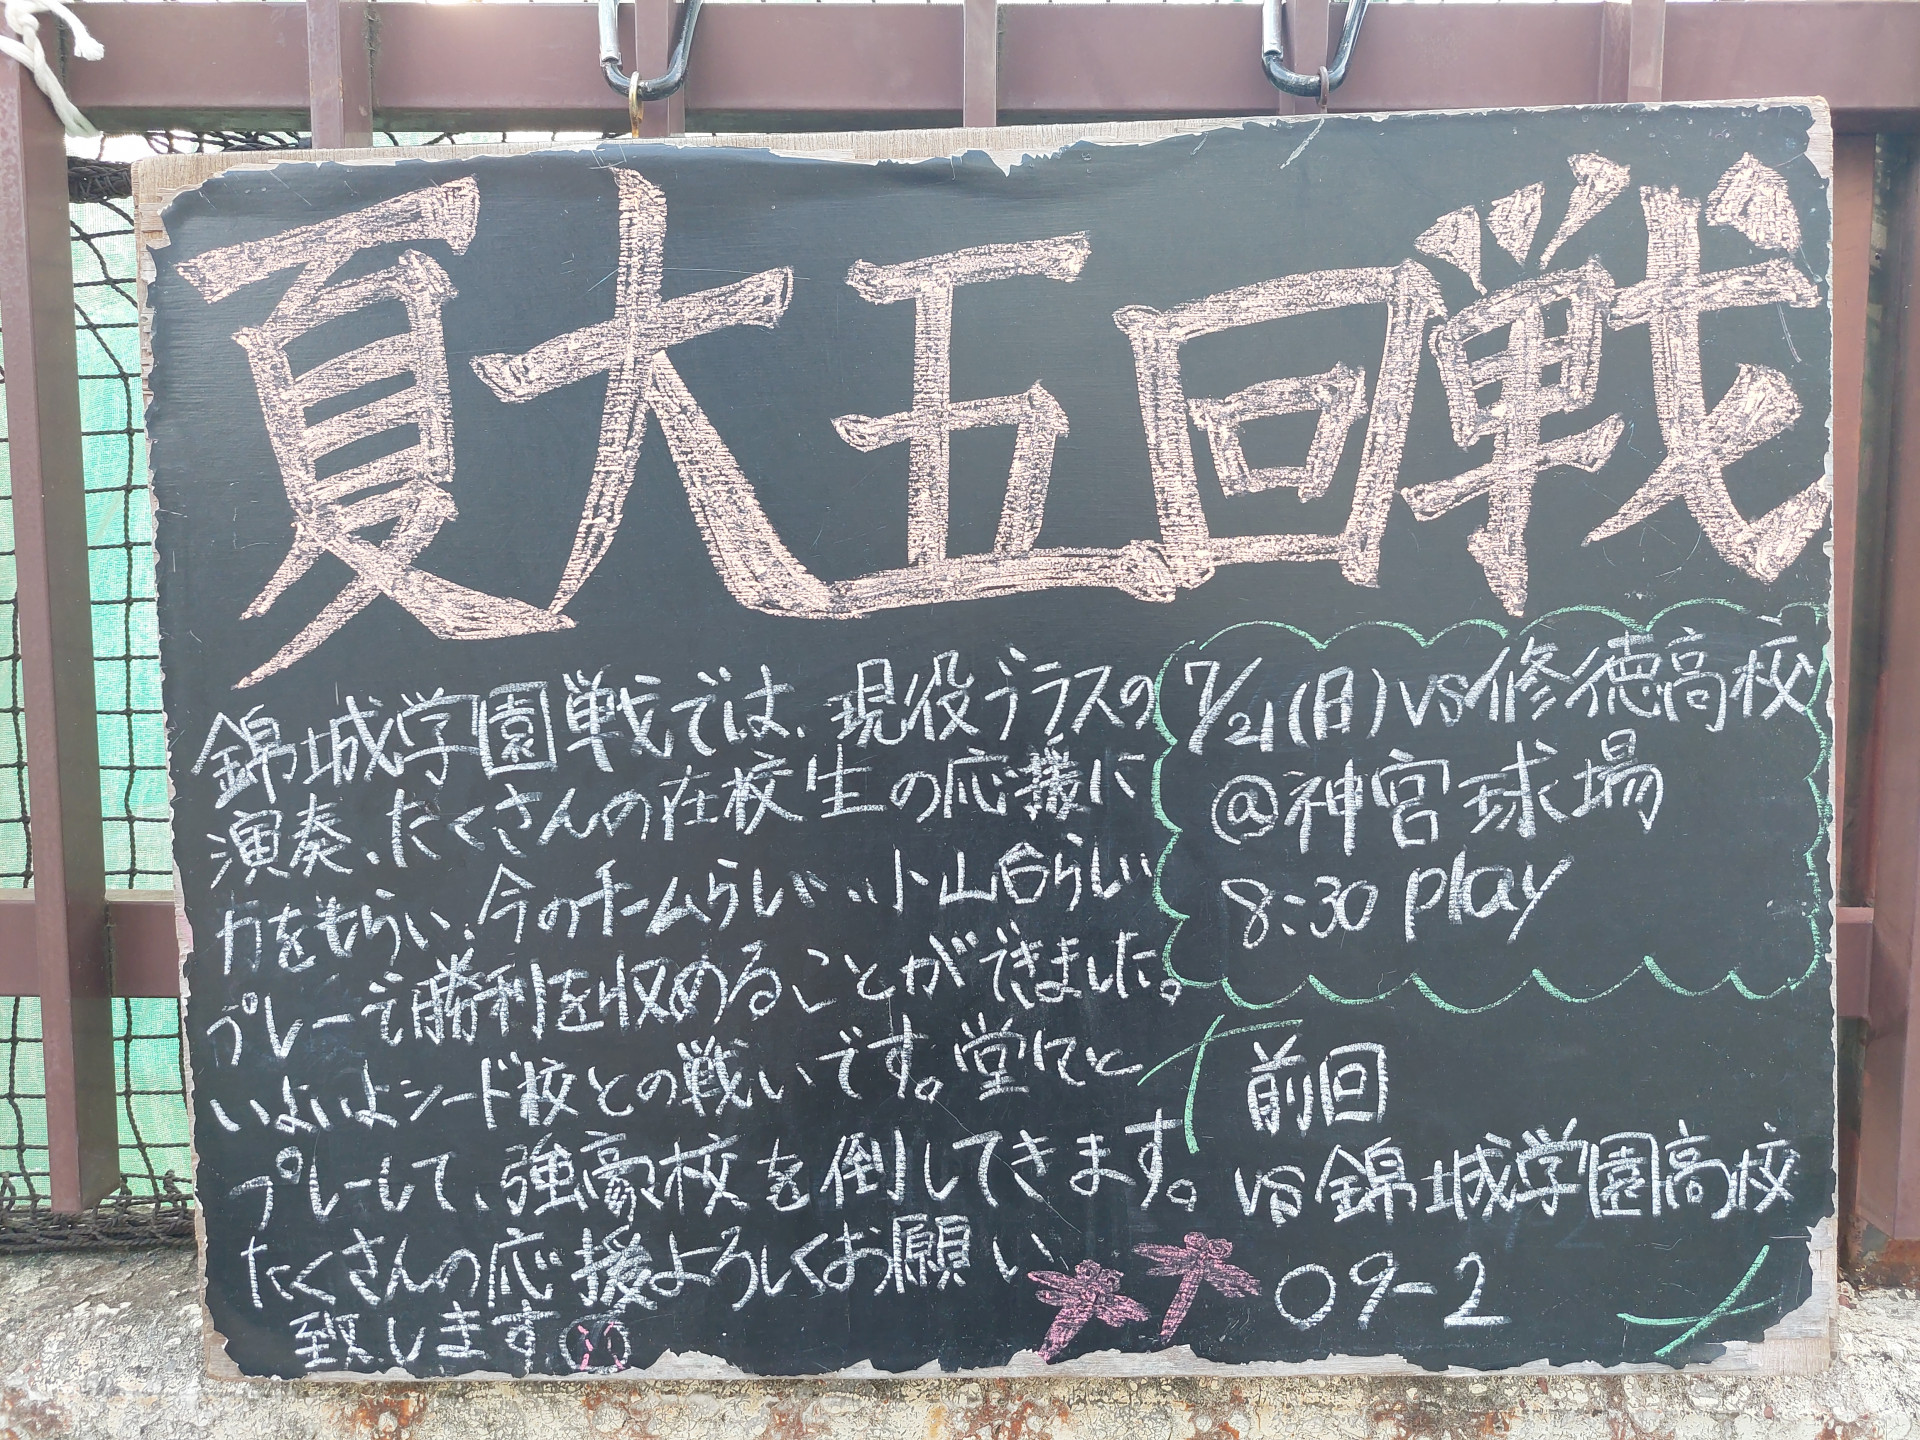 夏大五回戦
錦城学園戦では、現役ブラスの
演奏、たくさんの在校生の応援に
力をもらい、今のチームらしい、小山台らしい
プレーで勝利を収めることができました。
いよいよシード校との戦いです。堂々と
プレーして、強豪校を倒してきます。
たくさんの応援よろしくお願い
致します
7/21(日)vs修徳高校
@神宮球場
8:30 play
前回
vs錦城学園高校
○9-2